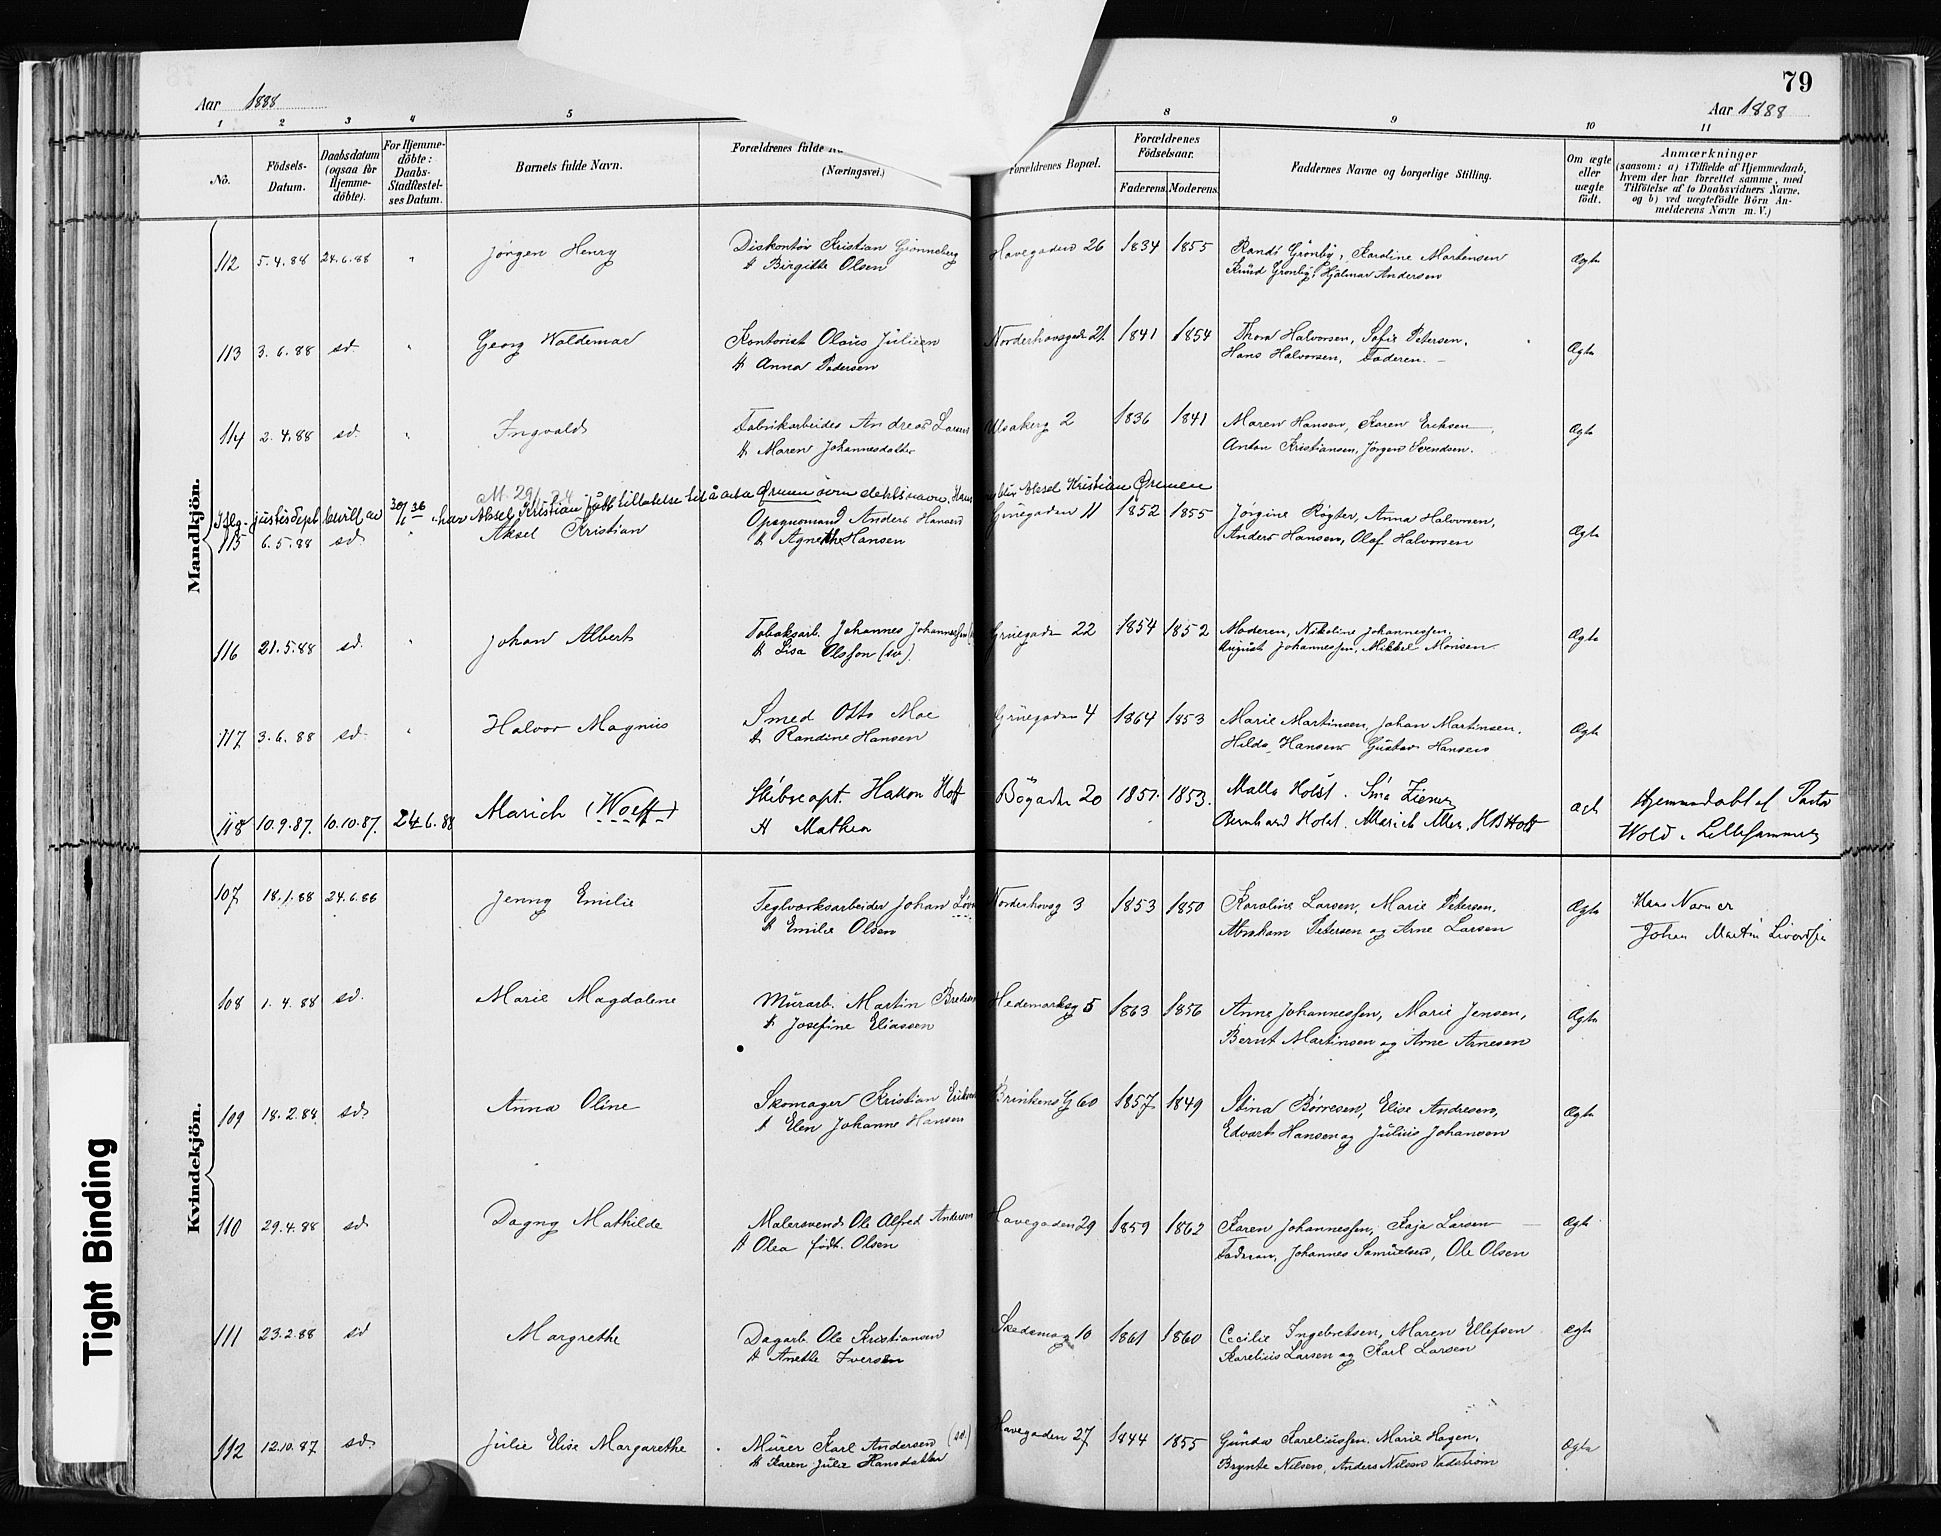 79
Aar 1888
Aar 1888
1 2 3 4 5 8 9 10 11
No.
Födsels-Datum.
Daabsdatum (ogsaa for Hjemme-döbte).
For Hjemme-döbte: Daabs-Stadfæstel-ses Datum.
Barnets fulde Navn.
Forældrenes fulde
(Næringsvei.)
Forældrenes Bopæl.
Forældrenes Födselsaar.
Faderens. Moderens.
Faddernes Navne og borgerlige Stilling.
Om ægte eller uægte födt.
Anmærkninger
(saasom: a) i Tilfælde af Hjemmedaab, hvem der har forrettet samme, med Tilföielse af to Daabsvidners Navne, og b) ved uægtefödte Börn An-melderens Navn m. V.)
Mandkjön.
112 5.4.88 24.6.88 " Jørgen Henry Diskontør Kristian Gjønneberg Havegaden 26 1834 1855 Randi Grønby, Karoline Martensen Ægte
& Birgitte Olsen Knud Grønby, Hjalmar Andersen
113 3.6.88 sd. " Georg Waldemar Kontorist Olaus Julisen Norderhovsgaden 21 1841 1854 Thora Halvorsen, Sofie Petersen, Ægte
& Anna Pedersen Hans Halvorsen, Faderen.
114 2.4.88 sd. " Ingvald Fabrikarbeider Andreas Larsen Ulvakerg 2 1836 1841 Maren Hansen, Karen Eriksen Ægte
& Maren Johannesdatter Anton Kristiansen, Jørgen Svendsen.
Iflg. justisdept. bevill. av 30/6 36 har Aksel Kristian fått tillatelse til å anta Ørmen som slektsnavn. Hans navn blir Aksel Kristian Ørmen
115 6.5.88 sd. " Aksel Kristian Opsynsmand Anders Hansen Gruegaden 11 1852 1855 Jørgine Røgter, Anna Halvorsen, Ægte
& Agnethe Hansen Anders Hansen, Olaf Halvorsen
116 21.5.88 sd. " Johan Albert Tobaksarb. Johannes Johannessen Gruegaden 22 1854 1852 Moderen, Nikoline Johannessen, Ægte
& Lisa Olsson (sv). August Johannessen, Mikkel Monsen
117 3.6.88 sd. " Halvor Magnus Smed Otto Moe Gruegaden 4 1864 1853 Marie Martinsen, Johan Martinsen, Ægte
& Randine Hansen Hilda Hansen, Gustav Hansen
118 10.9.87. 10.10.87. 24.6.88 Marich (Hoff) Skibscapt. Hakon Hoff Bögaden 20 1851. 1853. Malla Holst. Sina Ziener Ægte Hjemmedöbt af Pastor
& Mathea Bernhard Holst. Marich Moe, HB Hoff Wold i Lillehammer
Kvindekjön.
107 18.1.88 24.6.88 Jenny Emilie Teglværksarbeider Johan Norderhovsg 3 1853 1850 Karoline Larsen, Marie Petersen, Ægte Hans Navn er
& Emilie Olsen Abraham Petersen og Arne Larsen Johan Martin
108 1.4.88 sd. Marie Magdalene Murarb. Martin Bredesen Hedemarksg 5 1863 1856 Anne Johannessen, Marie Jensen, Ægte
& Josefine Eliassen Bernt Martinsen og Arne Arnesen
109 18.2.88 sd. Anna Oline Skomager Kristian Eriksen Brinkens G 60 1857 1849 Stina Børresen, Elise Andresen, Ægte
& Elen Johanne Hansen Edvart Hansen og Julius Johanson
110 29.4.88 sd. Dagny Mathilde Malersvend Ole Alfred Andersen Havegaden 29 1859 1862 Karen Johannessen, Kaja Larsen Ægte
& Olea født Olsen Faderen, Johannes Samuelsen, Ole Olsen
111 23.2.88 sd Margrethe Dagarb. Ole Kristiansen Skedsmog 10 1861 1860 Cecilie Ingebretsen, Maren Ellefsen Ægte
& Anette Iversen Karelius Larsen og Karl Larsen
112 12.10.87 sd. Julie Elise Margarethe Murer Karl Andersen (sv.) Havegaden 27 1844 1855 Gunda Kareliussen, Marie Hagen, Ægte
& Karen Julie Hansdatter Brynte Nilsen, Anders Nilsen Vadstrøm
Tight Binding